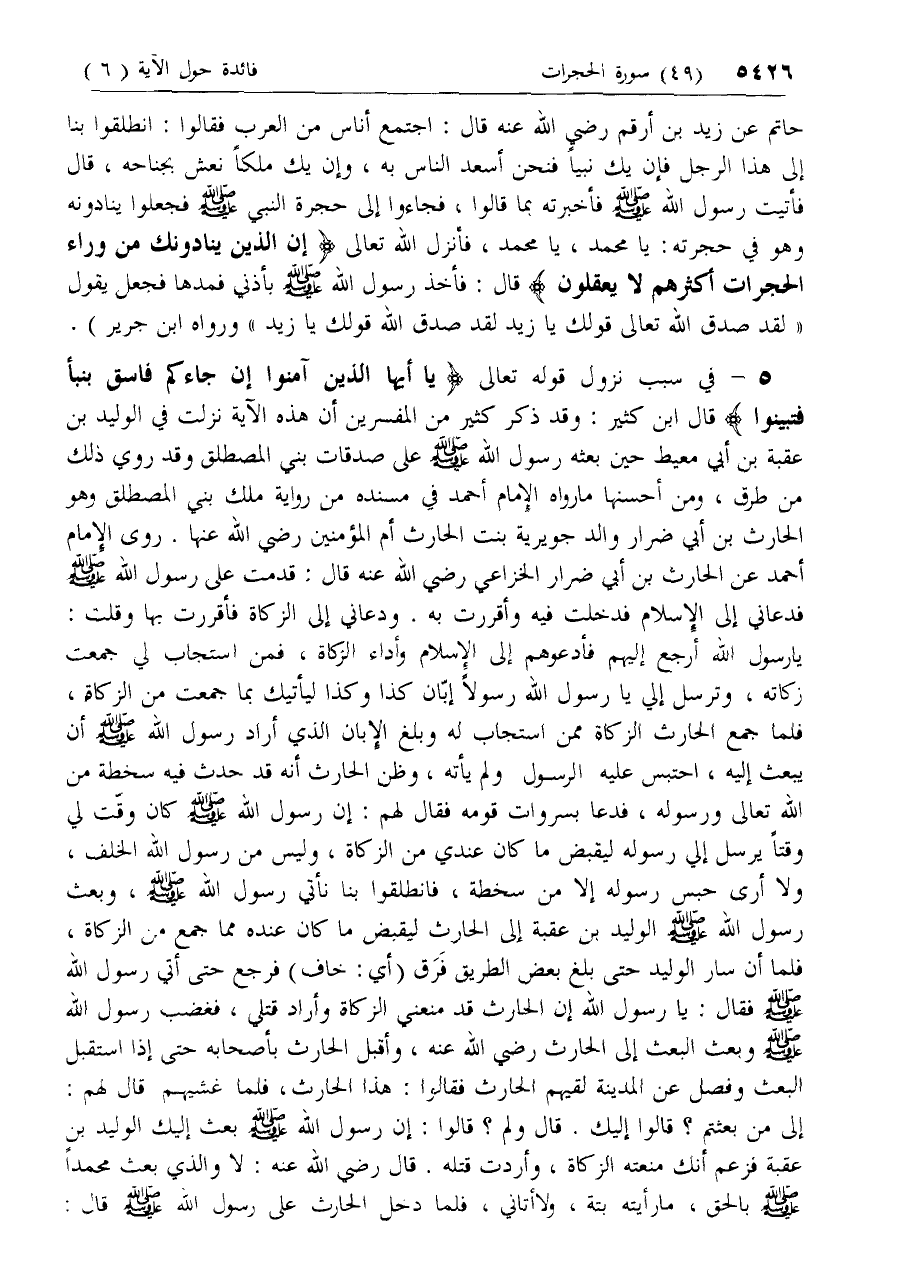 ٥٤٢٦ (٤٩) سورة الحجرات فائدة حول الآية ( ٦ )
حاتم عن زيد بن أرقم رضي الله عنه قال : اجتمع أناس من العرب فقالوا : انطلقوا بنا
إلى هذا الرجل فإن يك نبياً فنحن أسعد الناس به ، وإن يك ملكاً نعش بجناحه ، قال
فأتيت رسول الله ﷺ فأخبرته بما قالوا ، فجاءوا إلى حجرة النبي ﷺ فجعلوا ينادونه
وهو في حجرته : يا محمد ، يا محمد ، فأنزل الله تعالى ﴿ إن الذين ينادونك من وراء
الحجرات أكثرهم لا يعقلون ﴾ قال : فأخذ رسول الله ﷺ بأذني فمدها فجعل يقول
« لقد صدق الله تعالى قولك يا زيد لقد صدق الله قولك يا زيد » ورواه ابن جرير ) .
٥ – في سبب نزول قوله تعالى ﴿ يا أيها الذين آمنوا إن جاءكم فاسق بنبأ
فتبينوا ﴾ قال ابن كثير : وقد ذكر كثير من المفسرين أن هذه الآية نزلت في الوليد بن
عقبة بن أبي معيط حين بعثه رسول الله ﷺ على صدقات بني المصطلق وقد روي ذلك
من طرق ، ومن أحسنها مارواه الإمام أحمد في مسنده من رواية ملك بني المصطلق وهو
الحارث بن أبي ضرار والد جويرية بنت الحارث أم المؤمنين رضي الله عنها . روى الإمام
أحمد عن الحارث بن أبي ضرار الخزاعي رضي الله عنه قال : قدمت على رسول الله ﷺ
فدعاني إلى الإسلام فدخلت فيه وأقررت به . ودعاني إلى الزكاة فأقررت بها وقلت :
يارسول الله أرجع إليهم فأدعوهم إلى الإسلام وأداء الزكاة ، فمن استجاب لي جمعت
زكاته ، وترسل إلي يا رسول الله رسولاً إبّان كذا وكذا ليأتيك بما جمعت من الزكاة ،
فلما جمع الحارث الزكاة ممن استجاب له وبلغ الإبان الذي أراد رسول الله ﷺ أن
يبعث إليه ، احتبس عليه الرسول ولم يأته ، وظن الحارث أنه قد حدث فيه سخطة من
الله تعالى ورسوله ، فدعا بسروات قومه فقال لهم : إن رسول الله ﷺ كان وقّت لي
وقتاً يرسل إلي رسوله ليقبض ما كان عندي من الزكاة ، وليس من رسول الله الخلف ،
ولا أرى حبس رسوله إلا من سخطة ، فانطلقوا بنا نأتي رسول الله ﷺ ، وبعث
رسول الله ﷺ الوليد بن عقبة إلى الحارث ليقبض ما كان عنده مما جمع من الزكاة ،
فلما أن سار الوليد حتى بلغ بعض الطريق فَرَق (أي : خاف) فرجع حتى أتي رسول الله
ﷺ فقال : يا رسول الله إن الحارث قد منعني الزكاة وأراد قتلي ، فغضب رسول الله
ﷺ وبعث البعث إلى الحارث رضي الله عنه ، وأقبل الحارث بأصحابه حتى إذا استقبل
البعث وفصل عن المدينة لقيهم الحارث فقالوا : هذا الحارث، فلما غشيهم قال لهم :
إلى من بعثتم ؟ قالوا إليك . قال ولم ؟ قالوا : إن رسول الله ﷺ بعث إليك الوليد بن
عقبة فزعم أنك منعته الزكاة ، وأردت قتله . قال رضي الله عنه : لا والذي بعث محمداً
ﷺ بالحق ، مارأيته بتة ، ولاأتاني ، فلما دخل الحارث على رسول الله ﷺ قال :